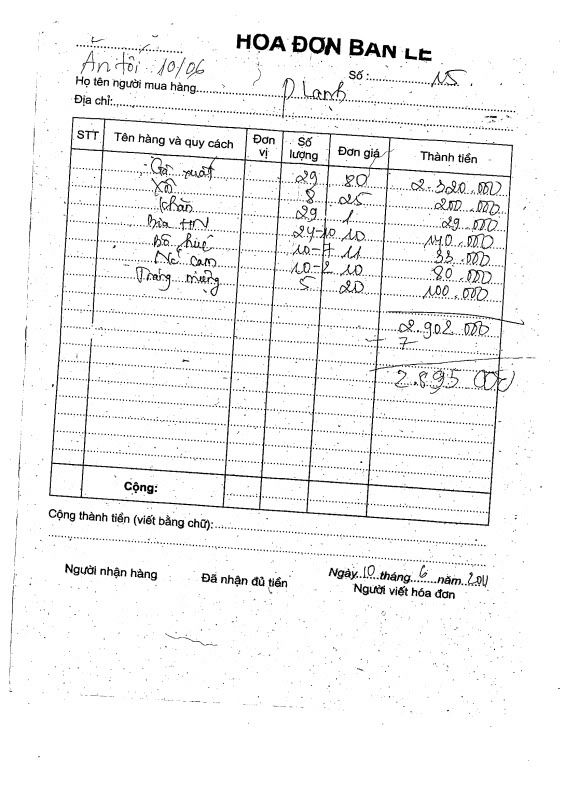 HÓA ĐƠN BÁN LẺ
Ăn tối 10/06
Số: N5
Họ tên người mua hàng P Lạnh
Địa chỉ:
STT Tên hàng và quy cách Đơn vị Số lượng Đơn giá Thành tiền
xuất 29 80 2.320.000
Xôi 8 25 200.000
Khăn 29 1 29.000
Bia HN 24-10 10 140.000
Bò húc 10-7 11 33.000
cam 10-2 10 80.000
Tráng miệng 5 20 100.000
2.902.000
- 7
2.895.000
Cộng:
Cộng thành tiền (viết bằng chữ):
Ngày 10 tháng 6 năm 2011
Người nhận hàng Đã nhận đủ tiền Người viết hóa đơn